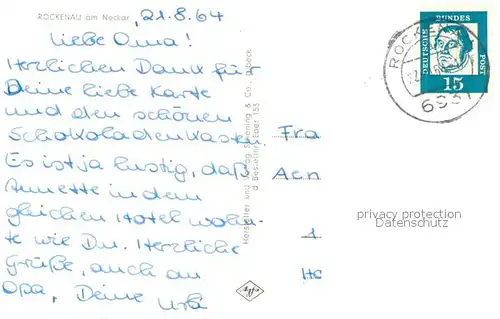 ROCKENAU am Neckar
21.8.64
Liebe Oma!
Herzlichen Dank für
Deine liebe Karte
und den schönen
Schokoladenkasten.
Es ist ja lustig, daß
Annette in dem
gleichen Hotel wohn-
te wie Du. Herzliche
Grüße, auch an
Opa, Deine
Fra
Hersteller und Verlag Schöning & Co., Lübeck
Bestellnr. Eber 155
privacy protection
Datenschutz
1
DEUTSCHE
BUNDES
POST
15
ROCKEN
6931